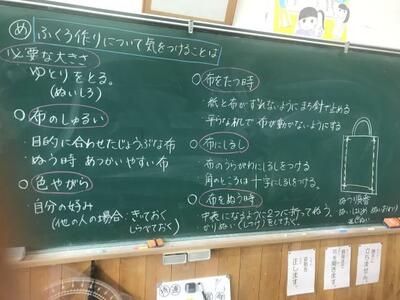 め ふくろ作りについて気をつけることは
必要な大きさ
ゆとりをとる。
(ぬいしろ)
○布のしゅるい
・目的に合わせたじょうぶな布
・ぬう時 あつかいやすい布
○色やがら
・自分の好み
(他の人の場合:きいておく
しらべておく)
○布をたつ時
・紙と布がずれないようにまち針で止める
・平らな机で布が動かないようにする
○布にしるし
・布のうらがわにしるしをつける
・角のところは十字にしるしをつける。
○布をぬう時
・中表になるように2つに折ってぬう。
・かりぬい(しつけ)をしておく。
ぬいはじめ ぬいおわり
返しぬい
正します。
立ちません。